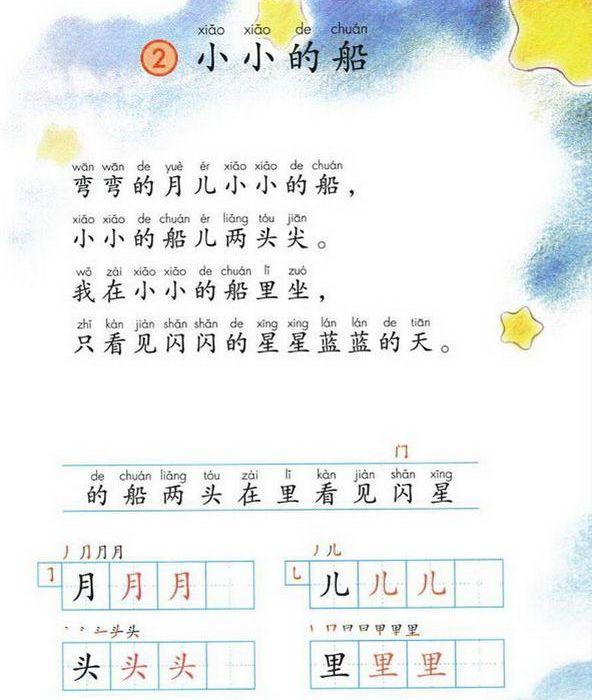 xiǎo xiǎo de chuán
2 小小的船
wān wān de yuè ér xiǎo xiǎo de chuán
弯弯的月儿小小的船，
xiǎo xiǎo de chuán ér liǎng tóu jiān
小小的船儿两头尖。
wǒ zài xiǎo xiǎo de chuán lǐ zuò
我在小小的船里坐，
zhǐ kàn jiàn shǎn shǎn de xīng xing lán lán de tiān
只看见闪闪的星星蓝蓝的天。
门
de chuán liǎng tóu zài lǐ kàn jiàn shǎn xīng
的船两头在里看见闪星
丿 ⺆ 月 月
㇆ 月 月 月
丿 儿
乚 儿 儿 儿
头 头
头 头 头
丨 冂 日 曰 甲 里 里
里 里 里